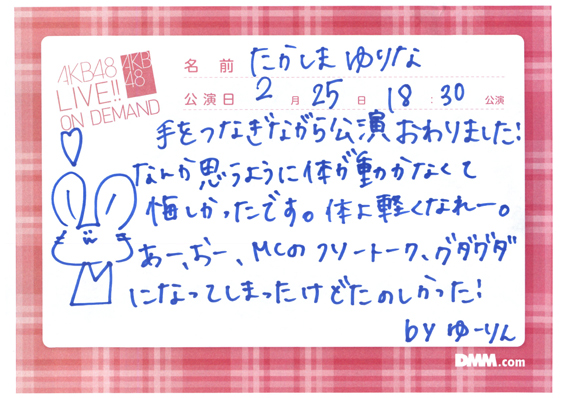 AKB48
LIVE!!
ON DEMAND
AKB
48
名前 たかしま ゆりな
公演日 2月25日 18:30公演
手をつなぎながら公演おわりました!
なんか思うように体が動かなくて
悔しかったです。体よ軽くなれー。
あー、おー、MCのフリートーク、グダグダ
になってしまったけどたのしかった!
by ゆーりん
DMM.com